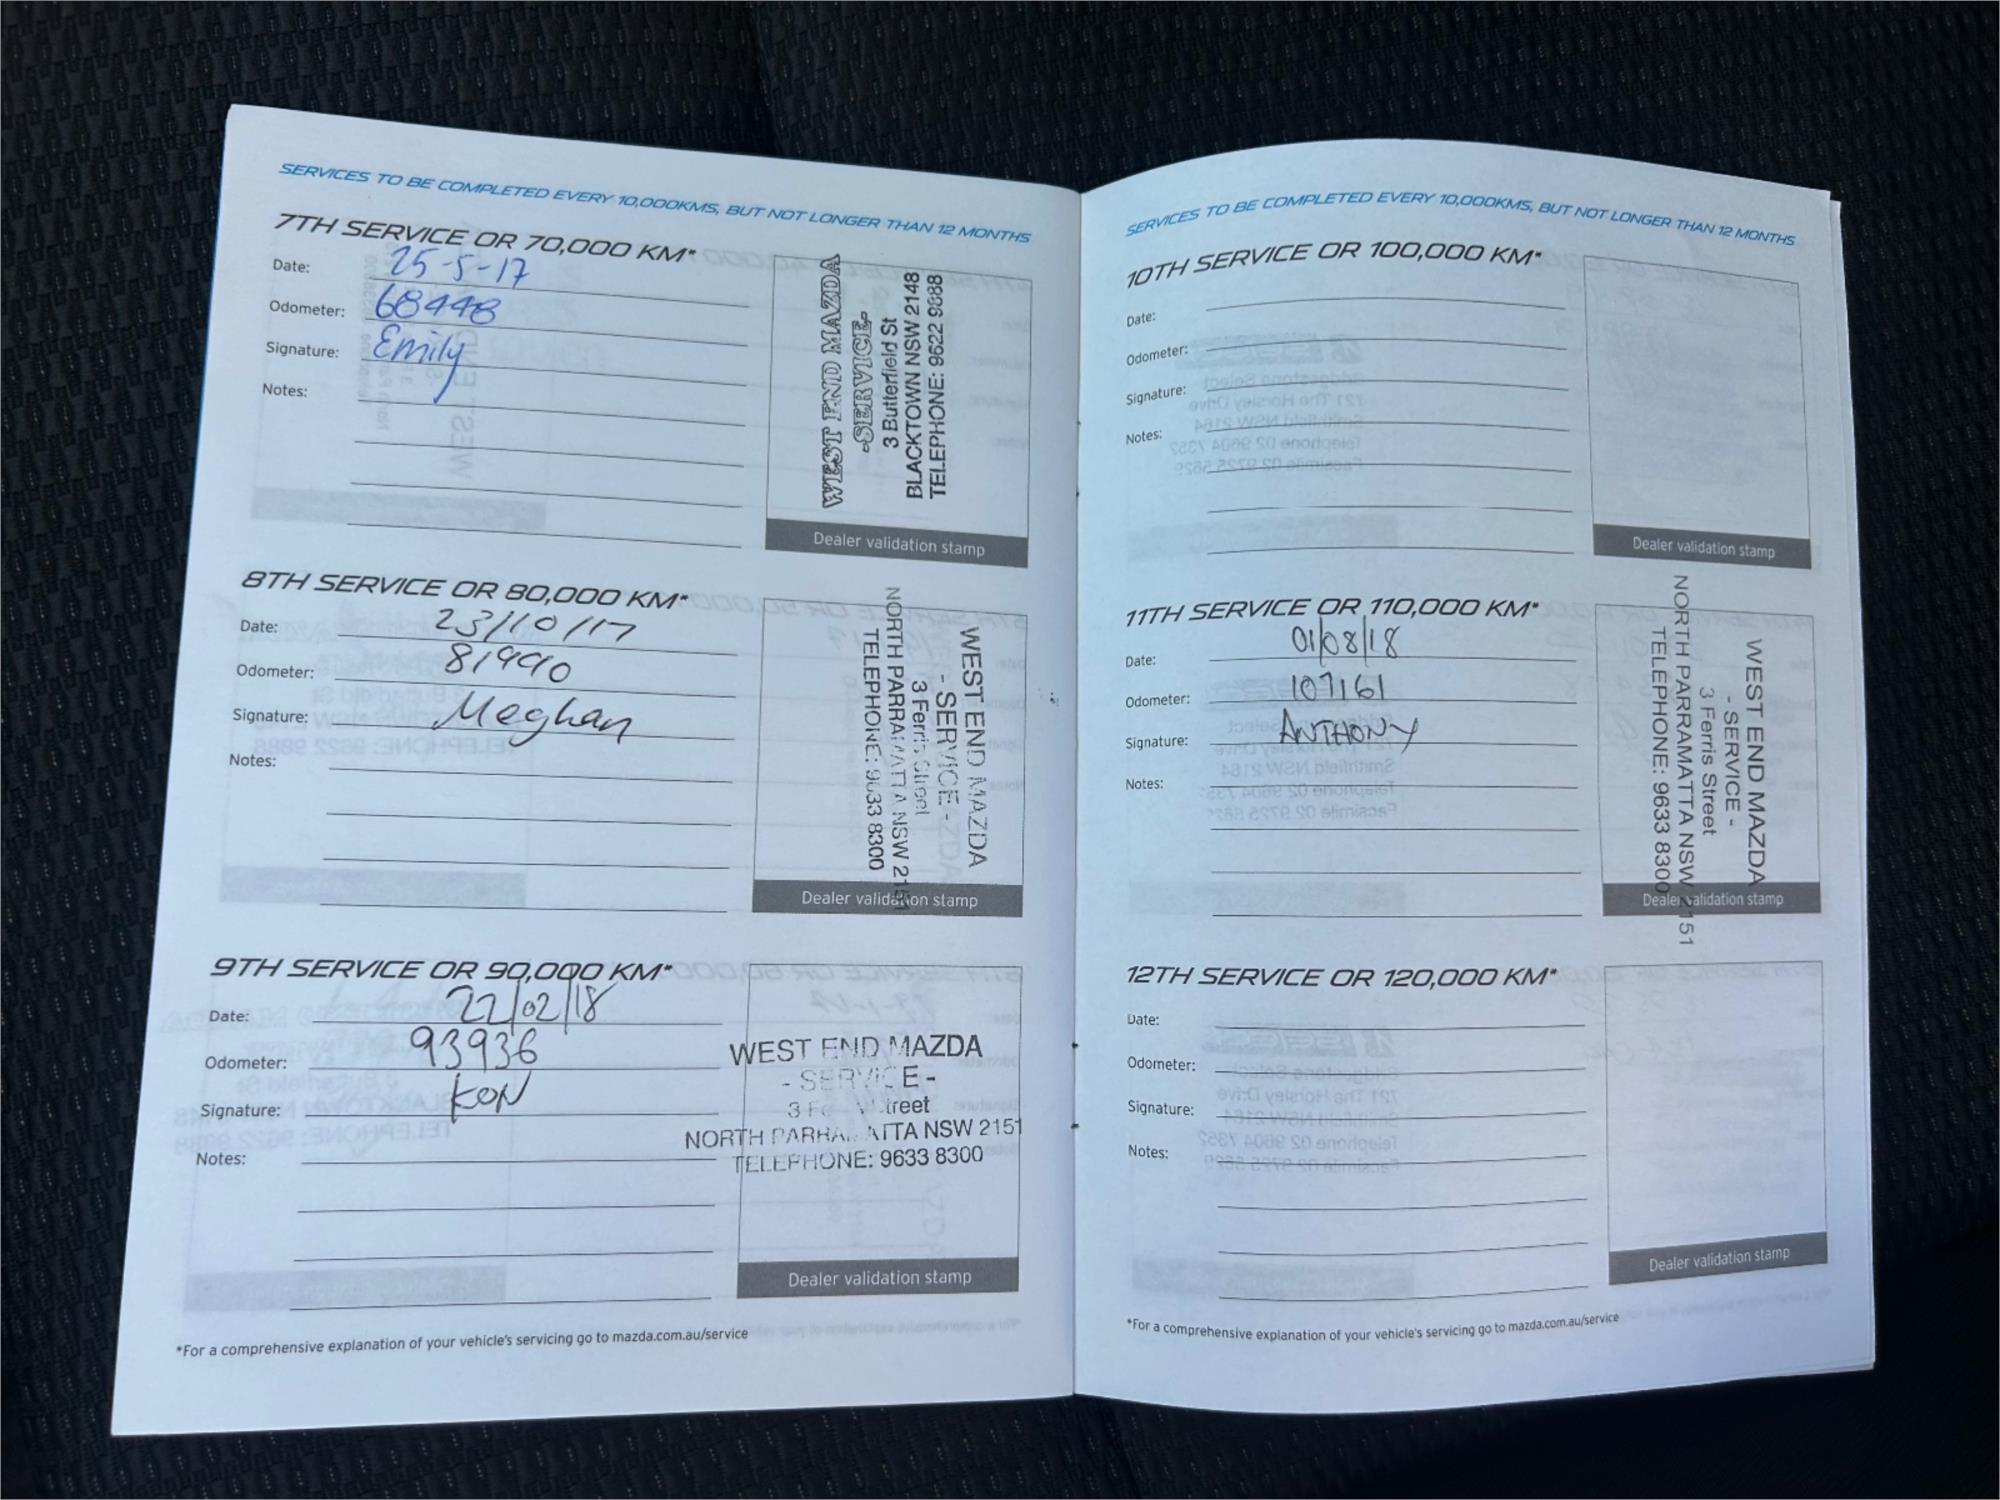 SERVICES TO BE COMPLETED EVERY 10,000KMS, BUT NOT LONGER THAN 12 MONTHS
7TH SERVICE OR 70,000 KM*
Date: 25-5-17
Odometer: 68448
Signature: Emily
Notes:
WEST END MAZDA
-SERVICE-
3 Butterfield St
BLACKTOWN NSW 2148
TELEPHONE: 9622 9888
Dealer validation stamp
8TH SERVICE OR 80,000 KM*
Date: 23/10/17
Odometer: 81990
Signature: Meghan
Notes:
WEST END MAZDA
- SERVICE -
3 Ferris Street
NORTH PARRAMATTA NSW 2151
TELEPHONE: 9633 8300
Dealer validation stamp
9TH SERVICE OR 90,000 KM*
Date: 22/02/18
Odometer: 93936
Signature: KON
Notes:
WEST END MAZDA
- SERVICE -
3 Street
NORTH PARRAMATTA NSW 2151
TELEPHONE: 9633 8300
Dealer validation stamp
*For a comprehensive explanation of your vehicle's servicing go to mazda.com.au/service
SERVICES TO BE COMPLETED EVERY 10,000KMS, BUT NOT LONGER THAN 12 MONTHS
10TH SERVICE OR 100,000 KM*
Date:
Odometer:
Signature:
Notes:
Dealer validation stamp
11TH SERVICE OR 110,000 KM*
Date: 01/08/18
Odometer: 107161
Signature: ANTHONY
Notes:
WEST END MAZDA
- SERVICE -
3 Ferris Street
NORTH PARRAMATTA NSW 2151
TELEPHONE: 9633 8300
Dealer validation stamp
12TH SERVICE OR 120,000 KM*
Date:
Odometer:
Signature:
Notes:
Dealer validation stamp
*For a comprehensive explanation of your vehicle's servicing go to mazda.com.au/service